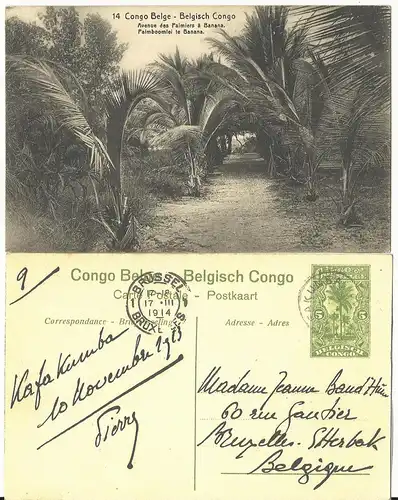 14 Congo Belge - Belgisch Congo
Avenue des Palmiers à Banana.
Palmboomlei te Banana.
9/
Congo Belge - Belgisch Congo
Carte Postale - Postkaart
Correspondance - Briefwisseling
Adresse - Adres
BRUSSEL
17 III
1914
BRUXELLES
5 5
BELGISCH
CONGO
Kafakumba
10 November 1913
Pierre
Madame Jeanne
60 rue Gautier
Bruxelles. Etterbek
Belgique